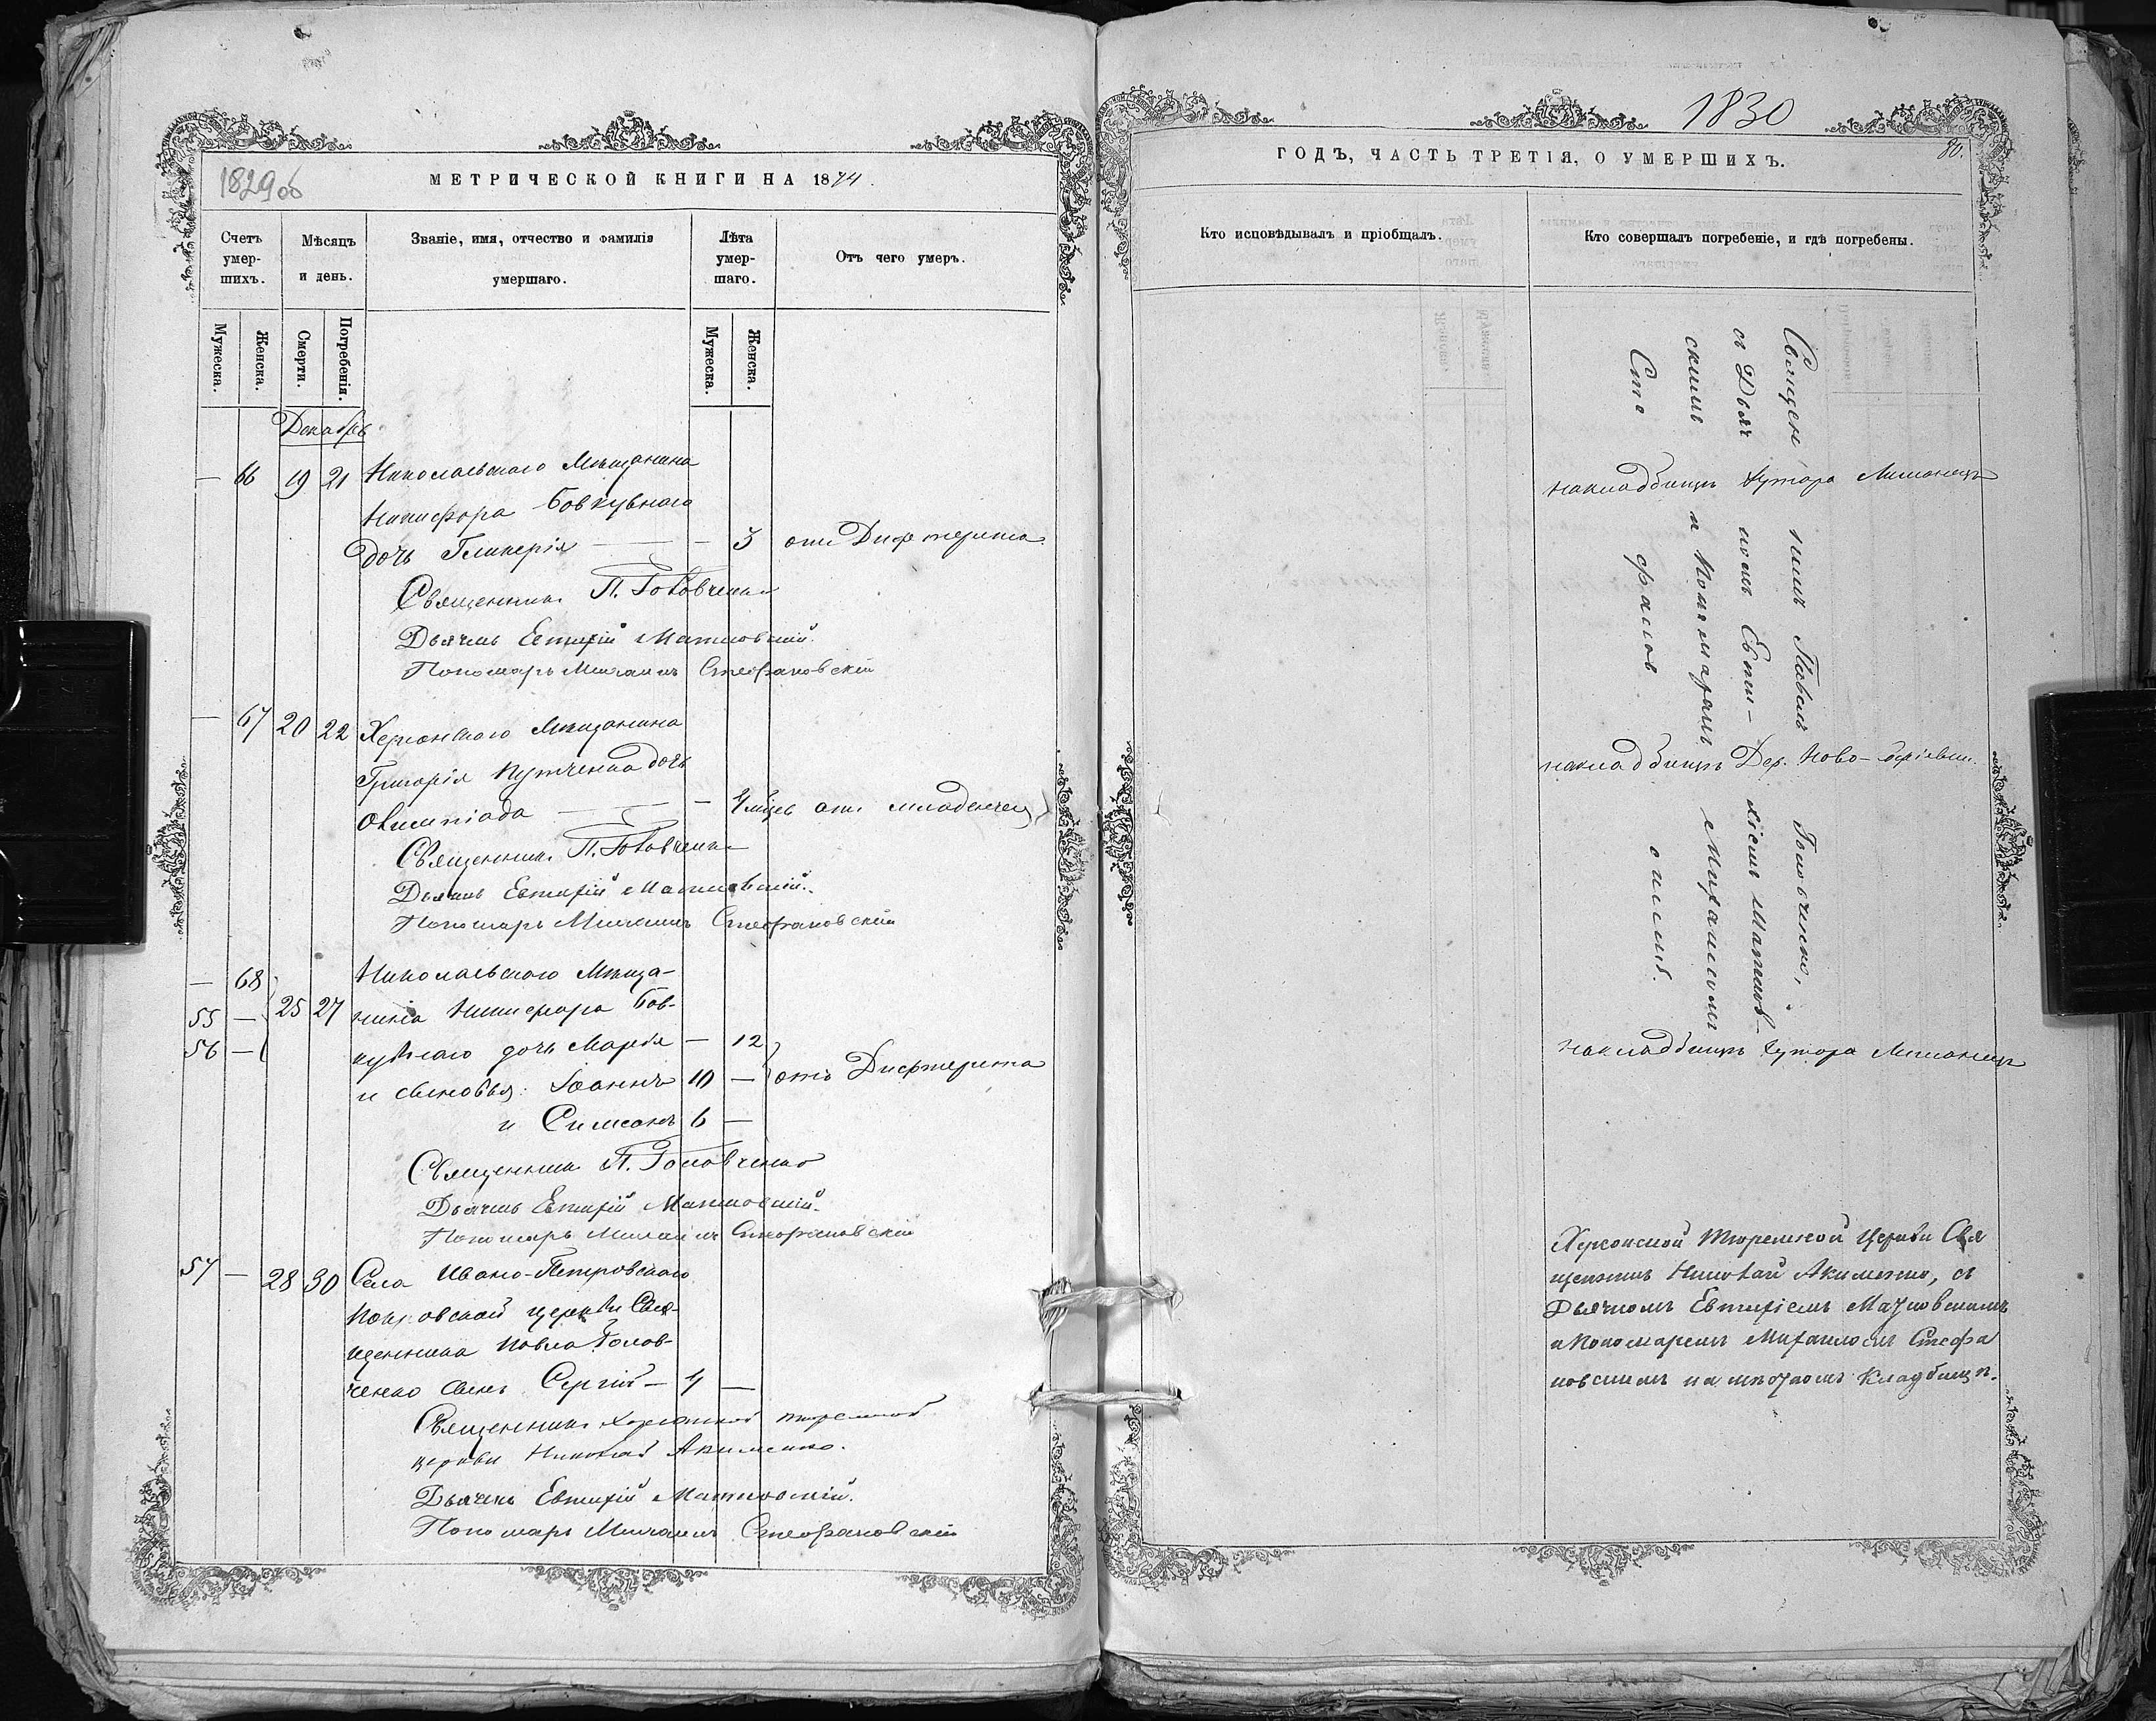 1829 об
МЕТРИЧЕСКОЙ КНИГИ НА 1874.
Счетъ умер-шихъ.
Мѣсяцъ и день.
Званіе, имя, отчество и фамилія умершаго.
Лѣта умер-шаго.
Отъ чего умеръ.
Мужеска.
Женска.
Смерти.
Погребенія.
Мужеска.
Женска.
Декабрь
— 66 19 21 Николаевскаго Мѣщанина
Никифора Бовкувнаго
дочь Гликерія — — 3 отъ Дифтерита.
Священникъ П. Головченко
Дьячекъ Евтихій
Пономарь Михаилъ Стефановскій
— 67 20 22 Херсонскаго Мѣщанина
Григорія дочь
Олимпіада — — мѣсц отъ младенчес
Священникъ П. Головченко
Дьячекъ Евтихій
Пономарь Михаилъ Стефановскій
— 68 Николаевскаго Мѣща-
55 — 25 27 нина Никифора Бов-
56 — кувнаго дочь Марія — 12
и сыновья: Іоаннъ 10 — отъ Дифтерита
и Симеонъ 6 —
Священникъ П. Головченко
Дьячекъ Евтихій
Пономарь Михаилъ Стефановскій
57 — 28 30 Села Ивано-Петровскаго
Покровской церкви Свя-
щенника Павла Голов-
ченко сынъ Сергій — 4 —
Священникъ Херсонской тюремной
церкви Николай Акименко.
Дьячекъ Евтихій
Пономарь Михаилъ Стефановскій
1830
80.
ГОДЪ, ЧАСТЬ ТРЕТІЯ, О УМЕРШИХЪ.
Кто исповѣдывалъ и пріобщалъ.
Кто совершалъ погребеніе, и гдѣ погребены.
Священникъ Павелъ Головченко,
съ Дьячкомъ Евти-хіемъ
скимъ и Пономаремъ Михаиломъ
Стефановскимъ.
на кладбищѣ Хутора
на кладбищѣ Дер. Ново-
на кладбищѣ Хутора
Херсонской Тюремной Церкви Свя
щенникъ Николай Акименко, съ
Дьячкомъ Евтихіемъ
и Пономаремъ Михаиломъ Стефа
новскимъ на кладбищѣ.